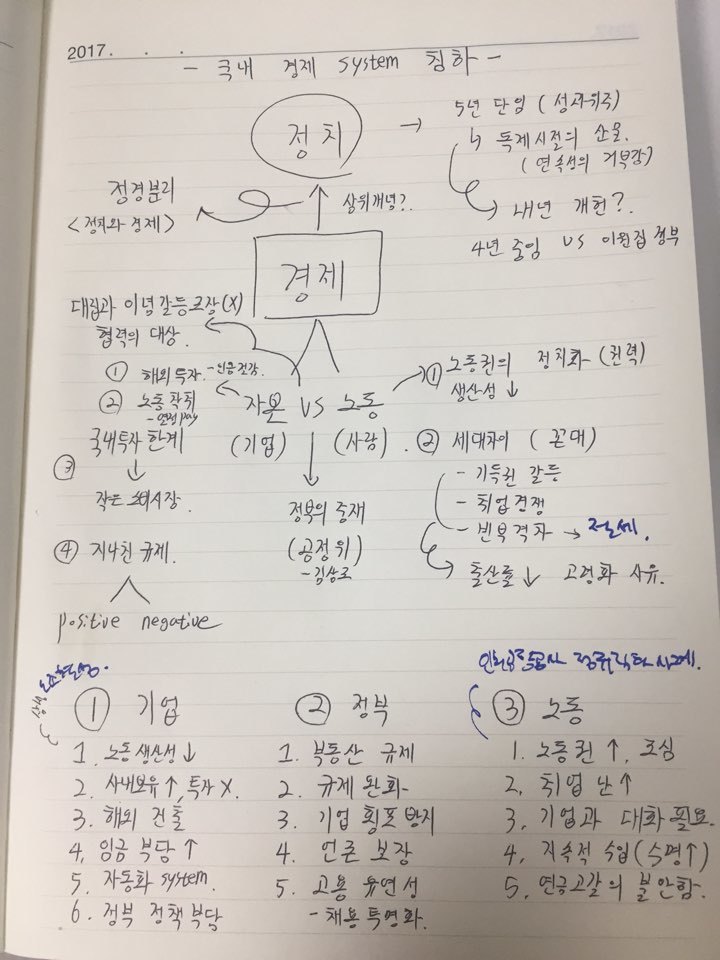 2017. . .
- 국내 경제 system 침하 -
정치 →
5년 단임 (성과위주)
↳ 독재시절의 산물.
(연속성의 거부감)
내년 개헌?.
4년 중임 VS 이원집정부
정경분리
<정치와 경제>
상위개념?.
경제
대립과 이념갈등조장(X)
협력의 대상.
① 해외투자. - 인금절감.
② 노동착취
- 열정pay
③ 국내투자 한계
↓
작은 소비시장.
④ 지나친 규제.
positive negative
자본 VS 노동
(기업) (사람).
정부의 중재
(공정위)
- 김상조
① 노동권의 정치화 (권력)
생산성 ↓
② 세대차이 (꼰대)
- 기득권 갈등
- 취업전쟁
- 빈부격차 → 전세.
출산률 ↓ 고령화 사유.
① 기업
1. 노동생산성 ↓
2. 사내보유 ↑, 투자 X.
3. 해외 진출
4. 임금 부담 ↑
5. 자동화 system.
6. 정부 정책 부담
② 정부
1. 부동산 규제
2. 규제 완화
3. 기업 횡포 방지
4. 언론 보장
5. 고용 유연성
- 채용 투명화.
정규직화 사례.
③ 노동
1. 노동권 ↑, 조심
2. 취업 난 ↑
3. 기업과 대화 필요.
4. 지속적 수입 (수명↑)
5. 연금고갈의 불안함.